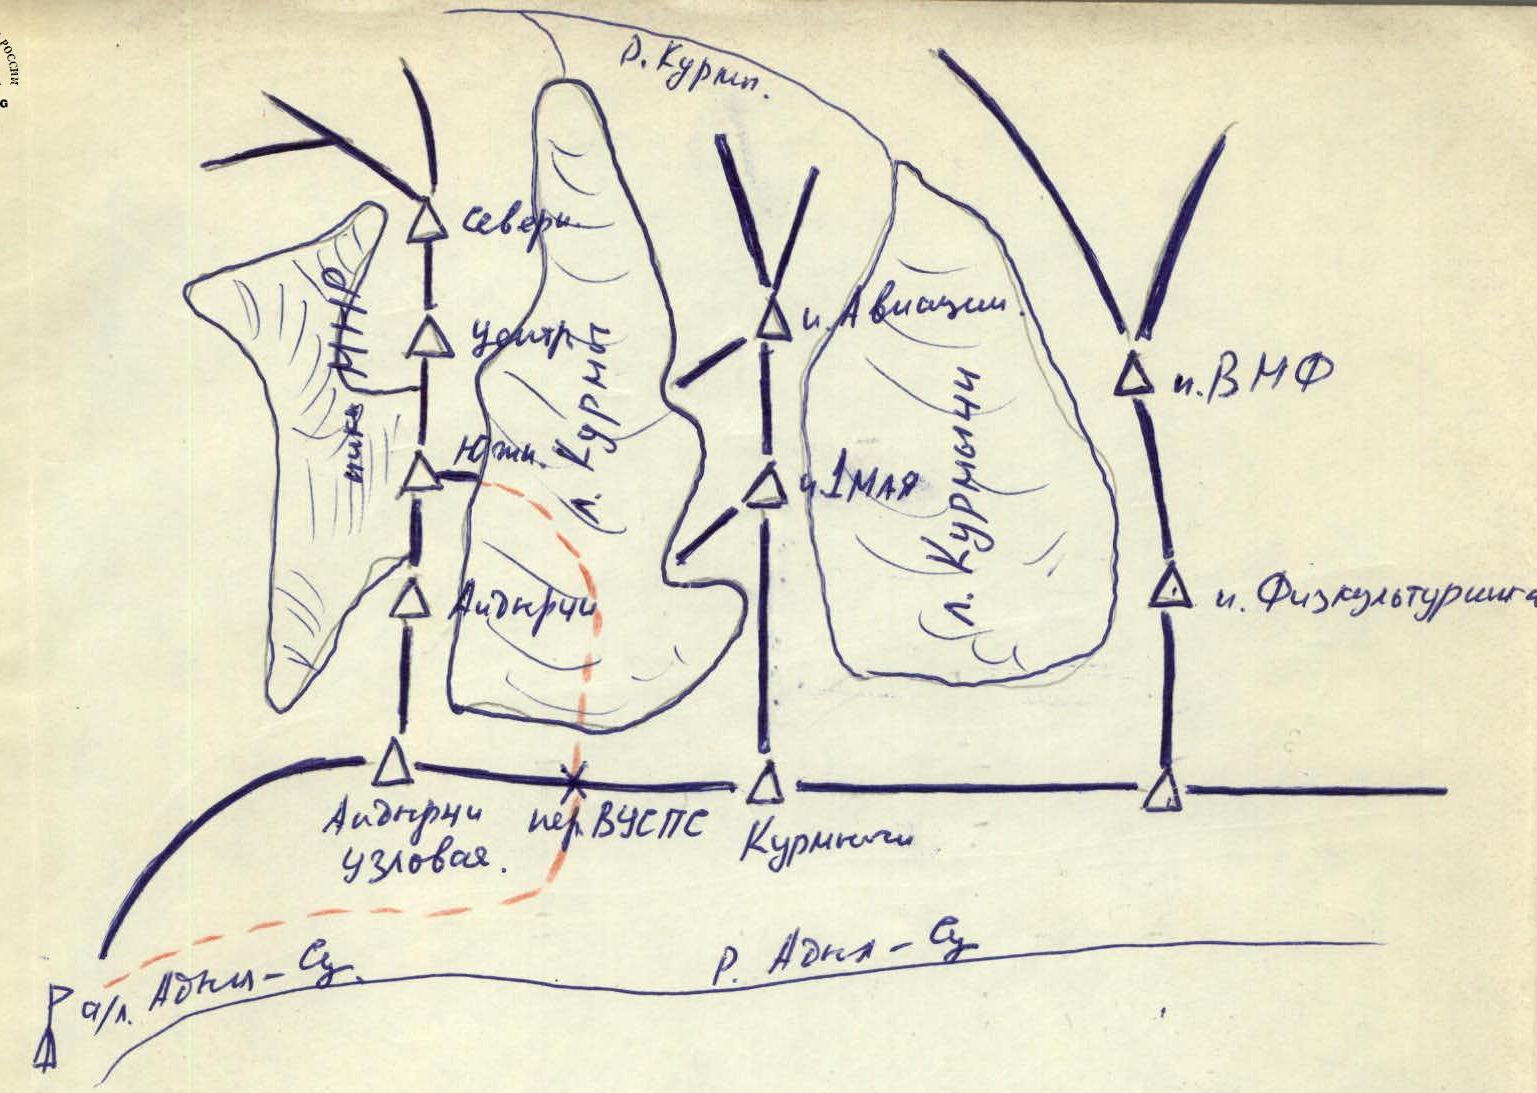 РОССИИ
р. Курмы.
Северн.
Центр.
пик МНР
л. Курмы
Южн.
п. Авиации.
п. 1 МАЯ
л. Курмычи
п. ВМФ
п. Физкультурника
Айдырчи
Айдырчи
узловая.
пер. ВЦСПС
Курмычи
а/л. Адыл-Су.
р. Адыл-Су